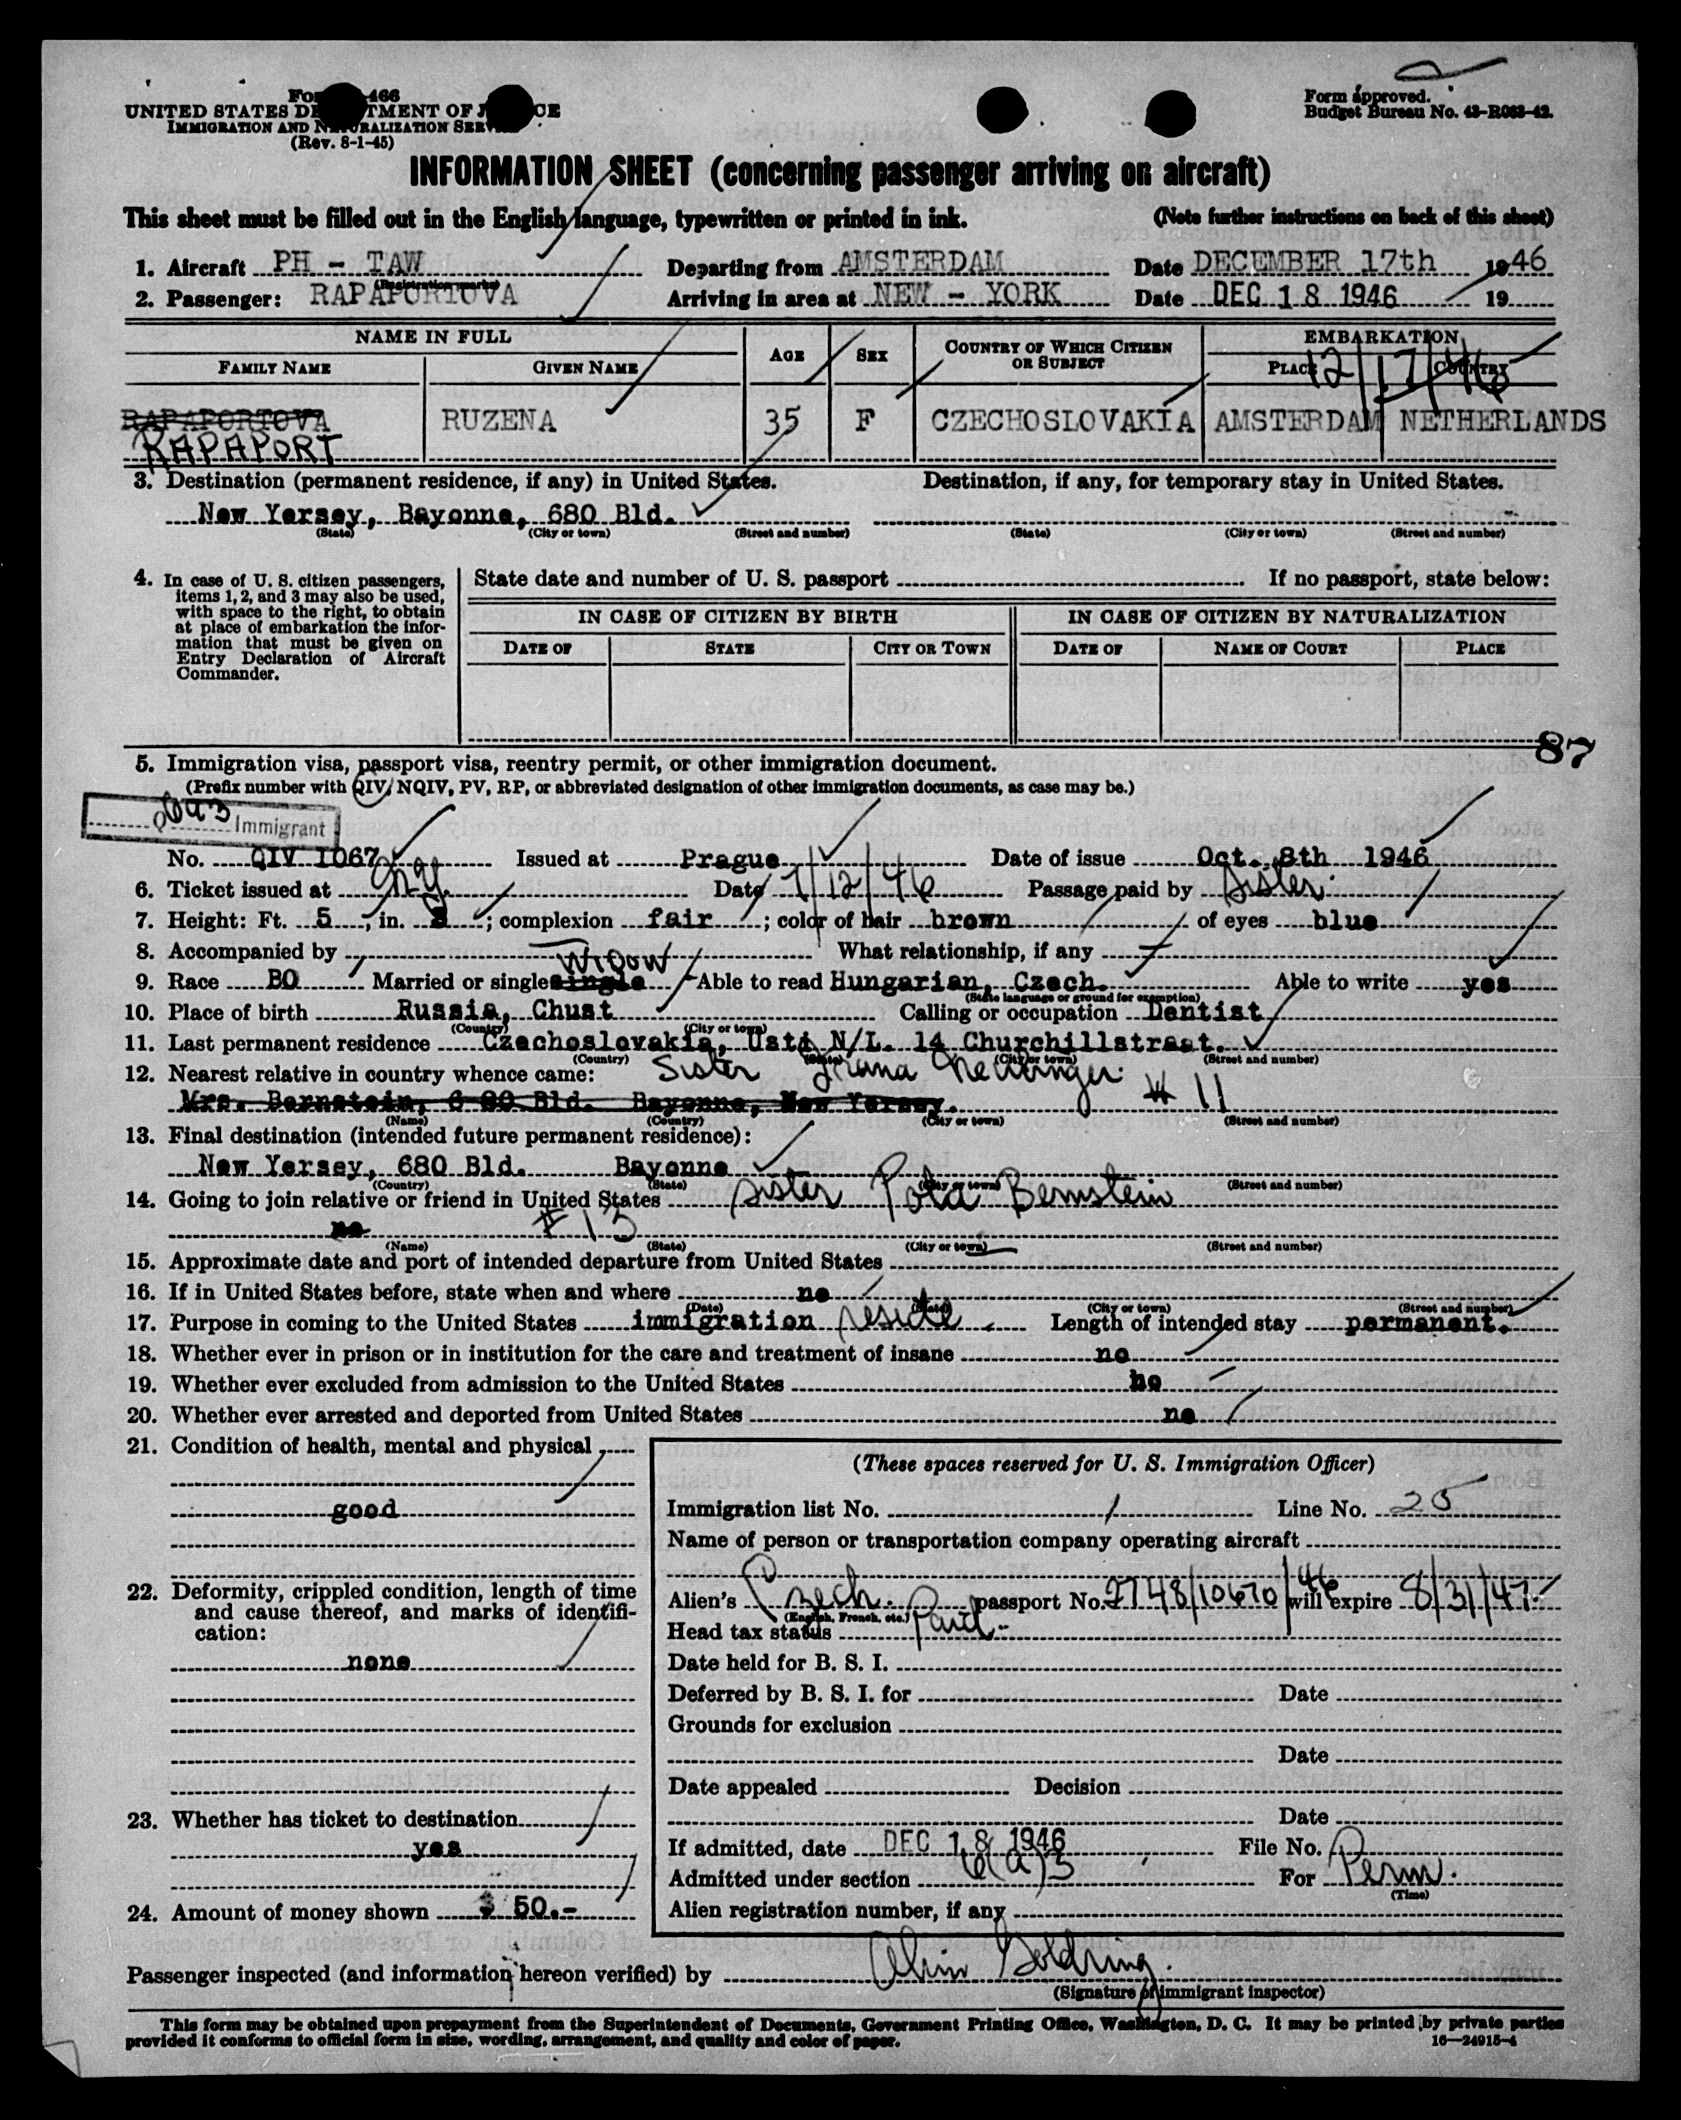 Form 466
UNITED STATES DEPARTMENT OF JUSTICE
IMMIGRATION AND NATURALIZATION SERVICE
(Rev. 8-1-45)
Form approved.
Budget Bureau No. 43-R063-42.
INFORMATION SHEET (concerning passenger arriving on aircraft)
This sheet must be filled out in the English language, typewritten or printed in ink. (Note further instructions on back of this sheet)
1. Aircraft PH - TAW Departing from AMSTERDAM Date DECEMBER 17th 1946
(Registration marks)
2. Passenger: RAPAPORTOVA Arriving in area at NEW - YORK Date DEC 18 1946 19
NAME IN FULL AGE SEX COUNTRY OF WHICH CITIZEN OR SUBJECT EMBARKATION
FAMILY NAME GIVEN NAME PLACE COUNTRY
12/17/46
RAPAPORTOVA RUZENA 35 F CZECHOSLOVAKIA AMSTERDAM NETHERLANDS
RAPAPORT
3. Destination (permanent residence, if any) in United States. Destination, if any, for temporary stay in United States.
New Yersey, Bayonne, 680 Bld.
(State) (City or town) (Street and number) (State) (City or town) (Street and number)
4. In case of U. S. citizen passengers, items 1, 2, and 3 may also be used, with space to the right, to obtain at place of embarkation the information that must be given on Entry Declaration of Aircraft Commander.
State date and number of U. S. passport If no passport, state below:
IN CASE OF CITIZEN BY BIRTH IN CASE OF CITIZEN BY NATURALIZATION
DATE OF STATE CITY OR TOWN DATE OF NAME OF COURT PLACE
87
5. Immigration visa, passport visa, reentry permit, or other immigration document.
(Prefix number with QIV, NQIV, PV, RP, or abbreviated designation of other immigration documents, as case may be.)
Immigrant
No. QIV 1067 Issued at Prague Date of issue Oct. 8th 1946
6. Ticket issued at N.Y. Date 7/12/46 Passage paid by Sister
7. Height: Ft. 5, in. 3; complexion fair; color of hair brown of eyes blue
8. Accompanied by What relationship, if any
Widow
9. Race BO Married or single single Able to read Hungarian, Czech. Able to write yes
(State language or ground for exemption)
10. Place of birth Russia, Chust Calling or occupation Dentist
(Country) (City or town)
11. Last permanent residence Czechoslovakia, Usti N/L. 14 Churchillstreet.
(Country) (State) (City or town) (Street and number)
12. Nearest relative in country whence came: Sister
# 11
Mrs. Bernstein, 6 80 Bld. Bayonne, New Yersey.
(Name) (Country) (City or town) (Street and number)
13. Final destination (intended future permanent residence):
New Yersey, 680 Bld. Bayonne
(Country) (State) (City or town) (Street and number)
14. Going to join relative or friend in United States sister Pola Bernstein
no # 13
(Name) (State) (City or town) (Street and number)
15. Approximate date and port of intended departure from United States
16. If in United States before, state when and where no
(Date) (State) (City or town) (Street and number)
17. Purpose in coming to the United States immigration reside Length of intended stay permanent.
18. Whether ever in prison or in institution for the care and treatment of insane no
19. Whether ever excluded from admission to the United States no
20. Whether ever arrested and deported from United States no
21. Condition of health, mental and physical
good
22. Deformity, crippled condition, length of time and cause thereof, and marks of identification:
none
23. Whether has ticket to destination
yes
24. Amount of money shown $ 50.-
(These spaces reserved for U. S. Immigration Officer)
Immigration list No. 1 Line No. 25
Name of person or transportation company operating aircraft
Alien's Czech. passport No. 2748/10670/46 will expire 8/31/47
(English, French, etc.)
Head tax status Paid-
Date held for B. S. I.
Deferred by B. S. I. for Date
Grounds for exclusion
Date
Date appealed Decision
Date
If admitted, date DEC 18 1946 File No.
Admitted under section 6(a)3 For Perm.
(Time)
Alien registration number, if any
Passenger inspected (and information hereon verified) by
(Signature of immigrant inspector)
This form may be obtained upon prepayment from the Superintendent of Documents, Government Printing Office, Washington, D. C. It may be printed by private parties
provided it conforms to official form in size, wording, arrangement, and quality and color of paper.
16—24915-4